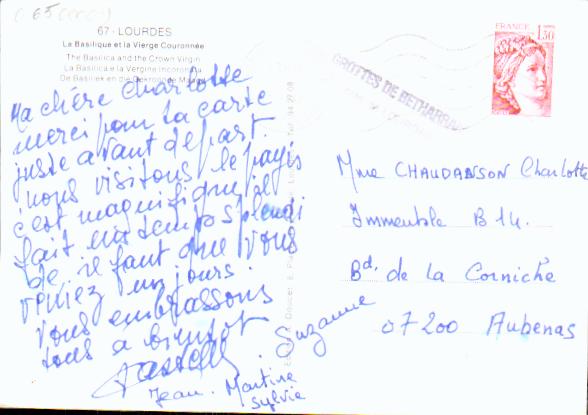 65
67 - LOURDES
La Basilique et la Vierge Couronnée
The Basilica and the Crown Virgin
La Basilica e la Vergine Incoronata
De Basiliek en de
Ma chère Charlotte
merci pour ta carte
juste avant départ.
nous visitons le pays
c'est magnifique il
fait un temps splendi
de il faut que vous
veniez un jours.
vous embrassons
tous a bientot
Suzanne
Jean. Martine
Sylvie
FRANCE
1,30
GROTTES DE BETHARRAM
Mme CHAUDANSON Charlotte
Immeuble B 14.
Bd. de la Corniche
07200 Aubenas
DOUCET